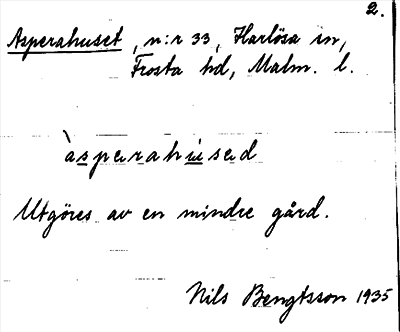 2.
Asperahuset, n:r 33, Harlösa sn,
Frosta hd, Malm. l.
àsperahu̇sed
Utgöres av en mindre gård.
Nils Bengtsson 1935